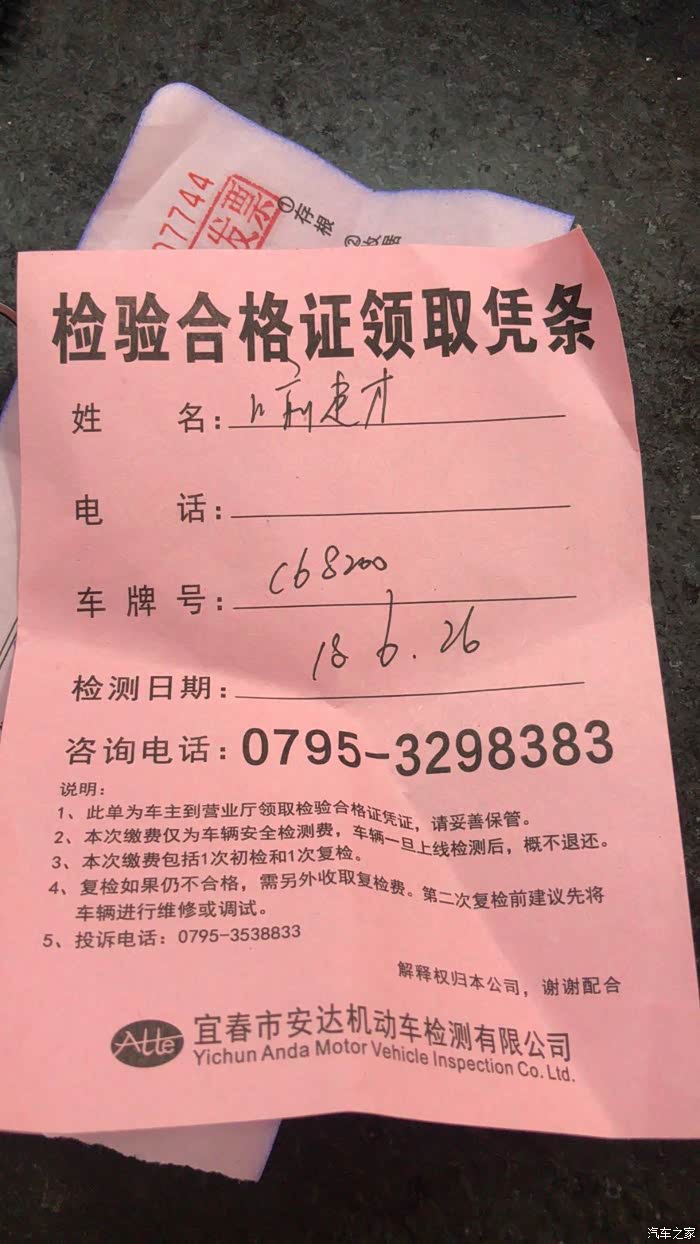 07744
发票
①存根
检验合格证领取凭条
姓 名:
电 话:
车牌号: C68200
检测日期: 18 6. 26
咨询电话: 0795-3298383
说明:
1、此单为车主到营业厅领取检验合格证凭证，请妥善保管。
2、本次缴费仅为车辆安全检测费，车辆一旦上线检测后，概不退还。
3、本次缴费包括1次初检和1次复检。
4、复检如果仍不合格，需另外收取复检费。第二次复检前建议先将
车辆进行维修或调试。
5、投诉电话: 0795-3538833
解释权归本公司，谢谢配合
Atte 宜春市安达机动车检测有限公司
Yichun Anda Motor Vehicle Inspection Co. Ltd.
汽车之家